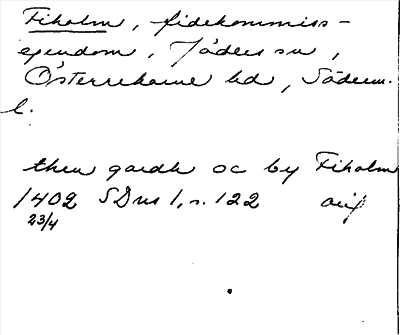 Fiholm, fidekommiss-
egendom, Jäders sn,
Österrekarne hd, Söderm.
l.
then gardh oc by Fiholm
1402 SDns 1, s. 122 orig
23/4